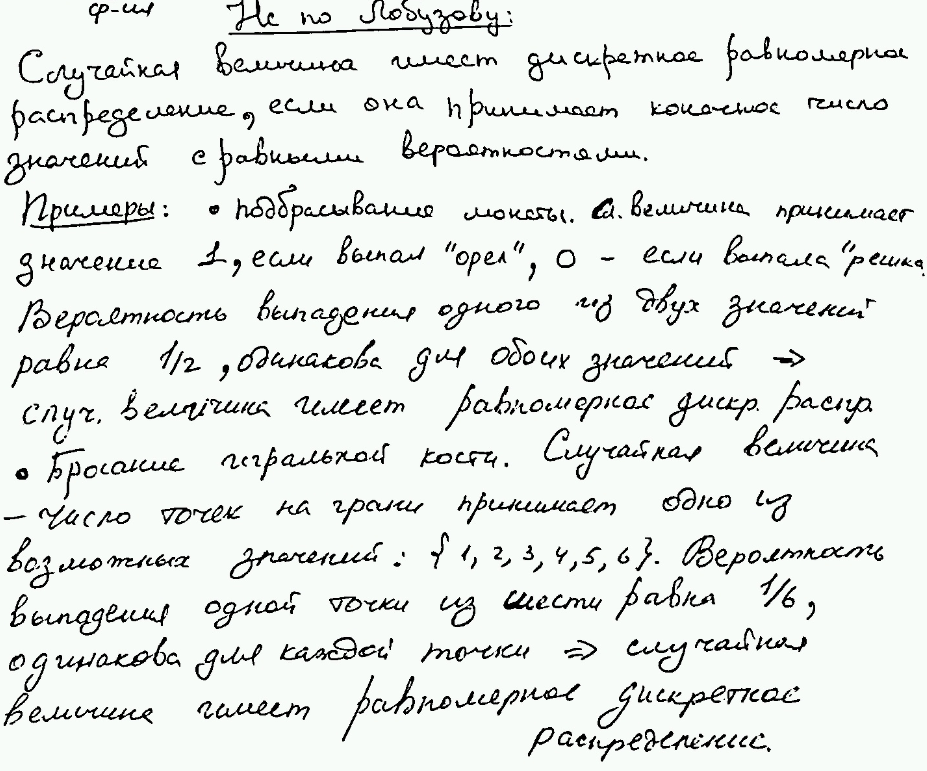 ф-ия Не по Лобузову:
Случайная величина имеет дискретное равномерное
распределение, если она принимает конечное число
значений с равными вероятностями.
Примеры: • подбрасывание монеты. Сл. величина принимает
значение 1, если выпал "орел", 0 - если выпала "решка
Вероятность выпадения одного из двух значений
равна 1/2, одинакова для обоих значений ⇒
случ. величина имеет равномерное дискр. распр.
• Бросание игральной кости. Случайная величина
- число точек на грани принимает одно из
возможных значений: {1, 2, 3, 4, 5, 6}. Вероятность
выпадения одной точки из шести равна 1/6,
одинакова для каждой точки ⇒ случайная
величина имеет равномерное дискретное
распределение.